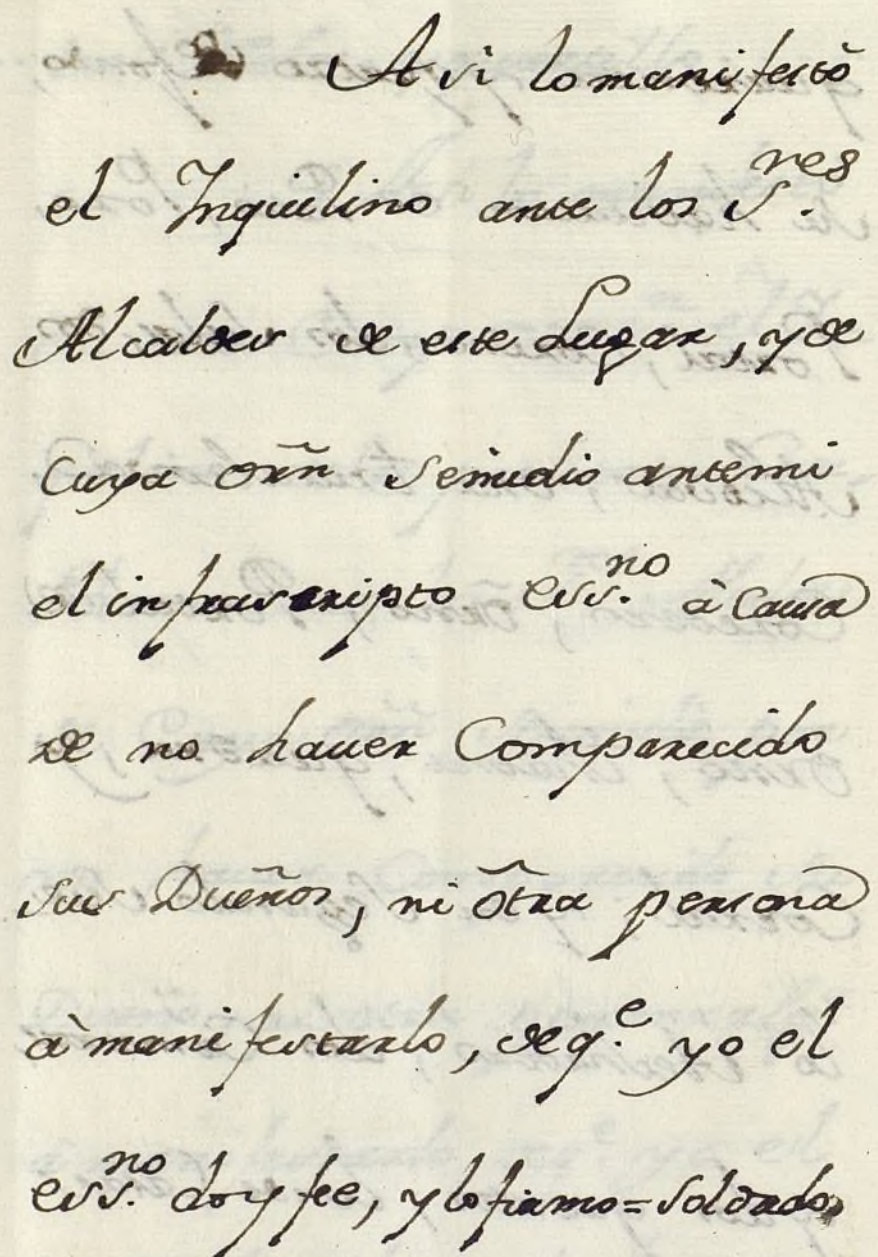 Asi lo manifestò
el Inquilino ante los S.res
Alcaldes de este Lugar, y de
Cuya orñ seinidio antemi
el infrascripto ess.no à Causa
de no hauer Comparecido
sus Dueños, ni òtra persona
à manifestarlo, deq.e yo el
ess.no doy fee, y lo firmo=Soldado